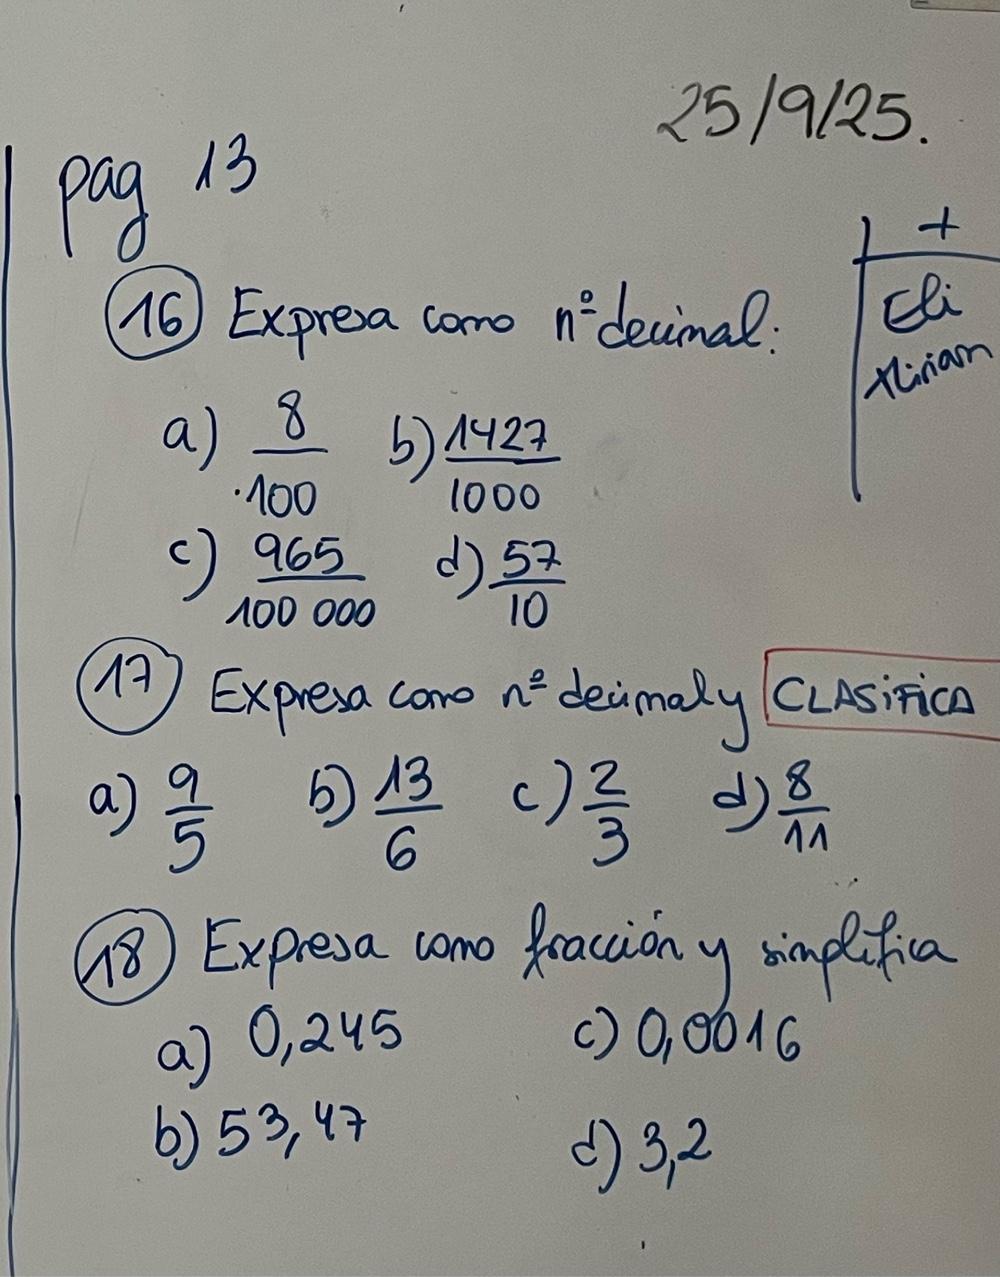 25/9/25.
pag 13
+
Eli
Miriam
16 Expresa como nº decimal:
a) 8/100 b) 1427/1000
c) 965/100 000 d) 57/10
17 Expresa como nº decimal y CLASiFiCA
a) 9/5 b) 13/6 c) 2/3 d) 8/11
18 Expresa como fracción y simplifica
a) 0,245 c) 0,0016
b) 53,47 d) 3,2